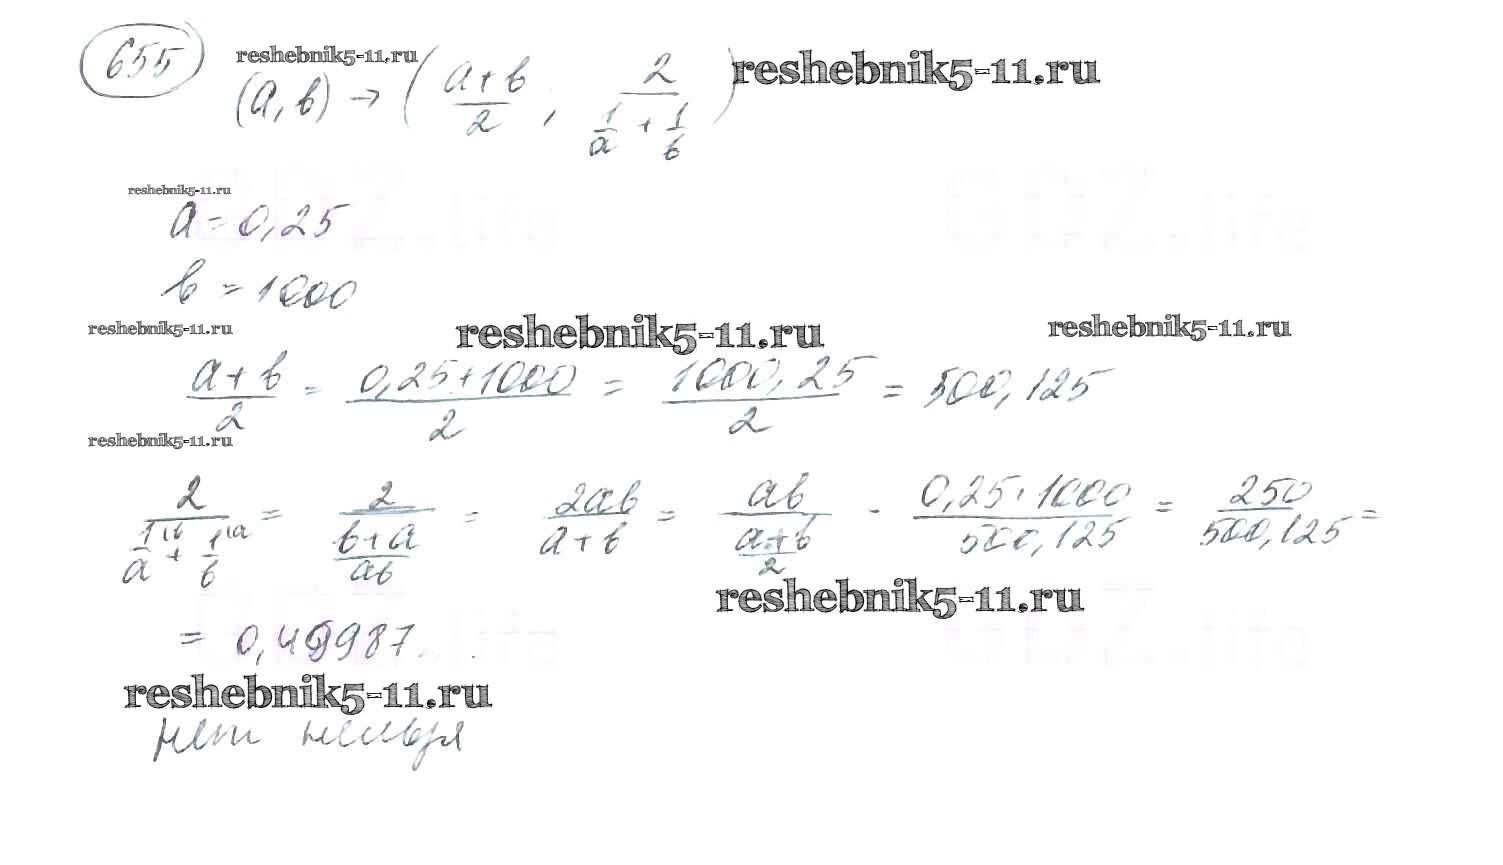 655
reshebnik5-11.ru
reshebnik5-11.ru
(a, b) → ( (a+b)/2 , 2/(1/a + 1/b) )
reshebnik5-11.ru
GDZ.life
GDZ.life
a = 0,25
b = 1000
reshebnik5-11.ru
reshebnik5-11.ru
reshebnik5-11.ru
(a+b)/2 = (0,25+1000)/2 = 1000,25/2 = 500,125
reshebnik5-11.ru
2/(1/a + 1/b) = 2/((b+a)/ab) = 2ab/(a+b) = ab/((a+b)/2) = 0,25·1000/500,125 = 250/500,125 =
reshebnik5-11.ru
GDZ.life
GDZ.life
= 0,49987...
reshebnik5-11.ru
нет нельзя